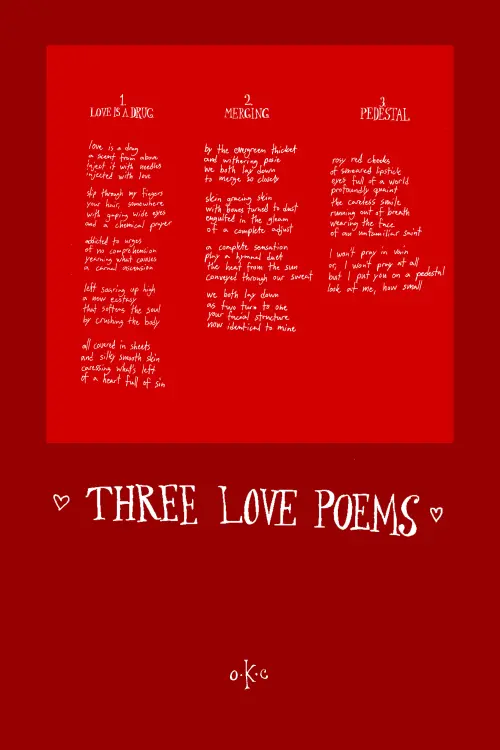 1.
LOVE IS A DRUG
love is a drug
a scent from above
inject it with needles
injected with love
slip through my fingers
your hair, somewhere
with gaping wide eyes
and a chemical proper
addicted to urges
of no comprehension
yearning what causes
a carnal ascension
left soaring up high
a new ecstasy
that softens the soul
by crushing the body
all covered in sheets
and silky smooth skin
caressing what's left
of a heart full of sin
2.
MERGING
by the evergreen thicket
and withering pair
we both lay down
to merge so closely
skin gracing skin
with bones turned to dust
engulfed in the gleam
of a complete adjust
a complete sensation
play a hymnal duet
the heat from the sun
conveyed through our sweat
we both lay down
as two turn to one
your facial structure
now identical to mine
3.
PEDESTAL
rosy red cheeks
of smeared lipstick
eyes full of a world
profoundly quaint
the careless smile
running out of breath
wearing the face
of our unfamiliar saint
I won't pray in vain
or, I won't pray at all
but I put you on a pedestal
look at me, how small
THREE LOVE POEMS
o.K.c